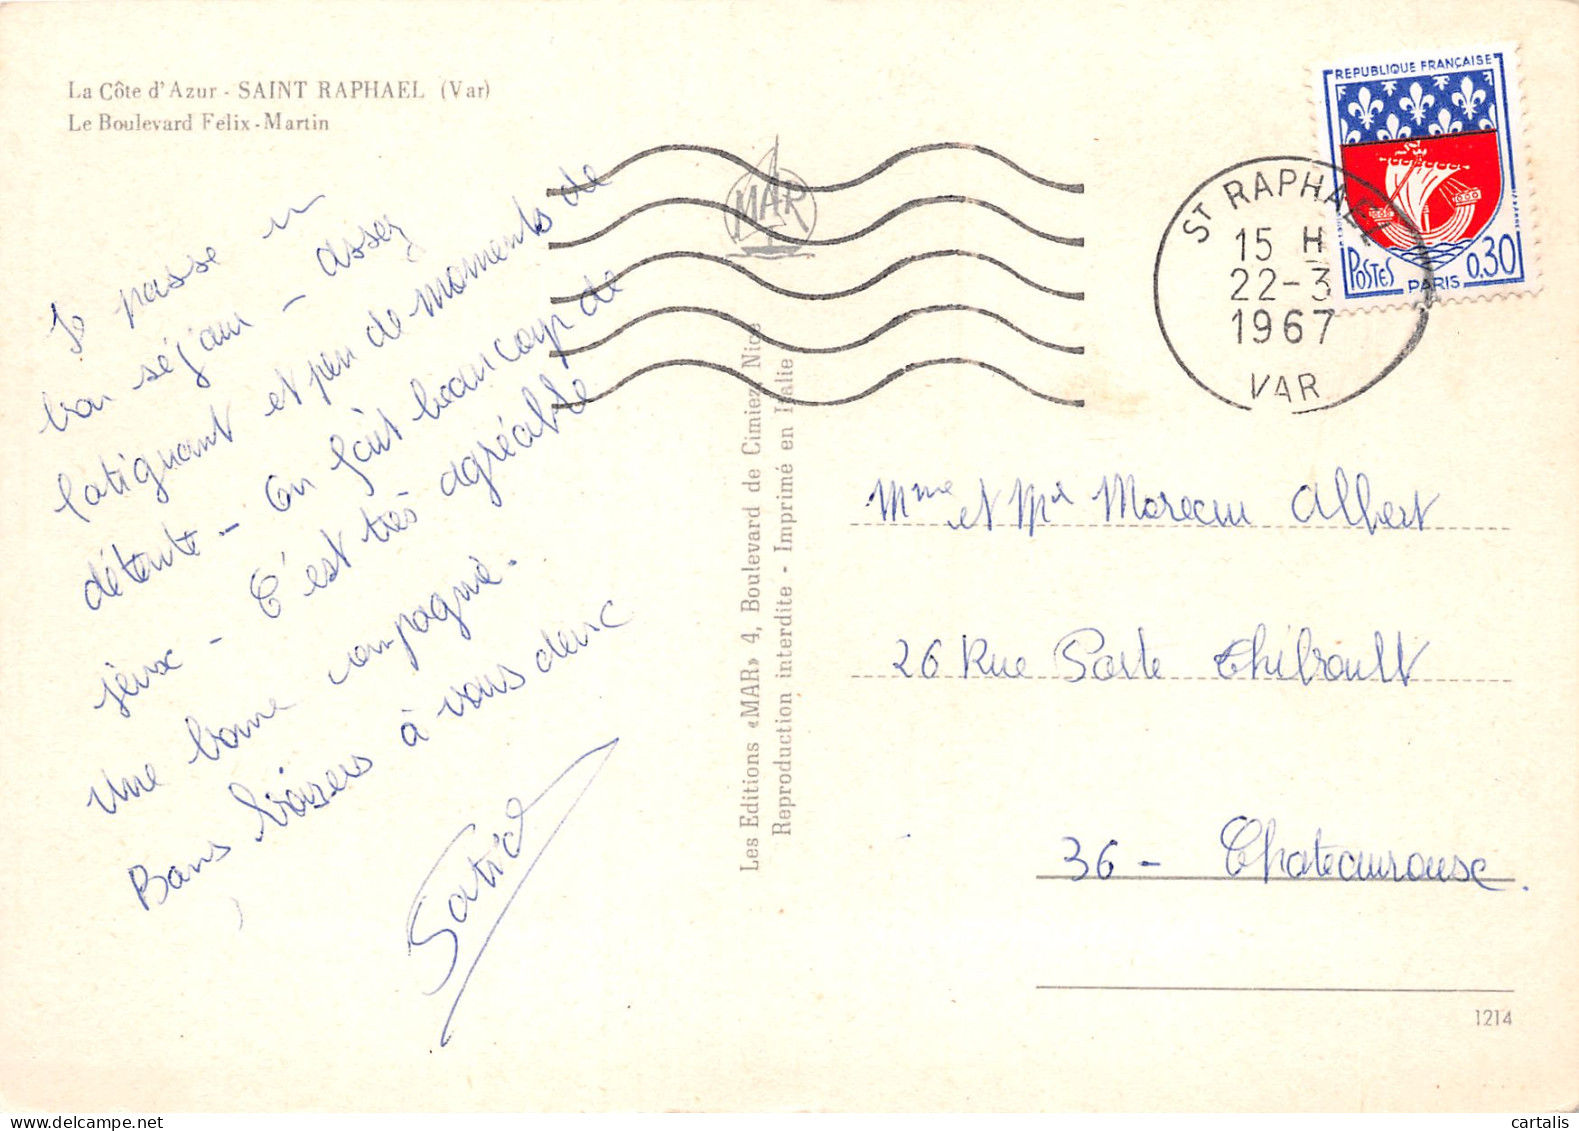 La Côte d'Azur - SAINT RAPHAEL (Var)
Le Boulevard Felix-Martin
Je passe un
bon séjour - assez
fatiguant et peu de moments de
détente - On fait beaucoup de
jeux - C'est très agréable
une bonne compagnie.
Bons baisers à vous deux
Patrick
MAR
Les Editions «MAR» 4, Boulevard de Cimiez Nice
Reproduction interdite - Imprimé en Italie
REPUBLIQUE FRANÇAISE
POSTES
PARIS
0,30
ST RAPHAEL
15 H
22-3
1967
VAR
Mme et Mr Moreau Albert
26 Rue Porte Thibault
36 - Chateauroux.
1214
cartalis
delcampe.net